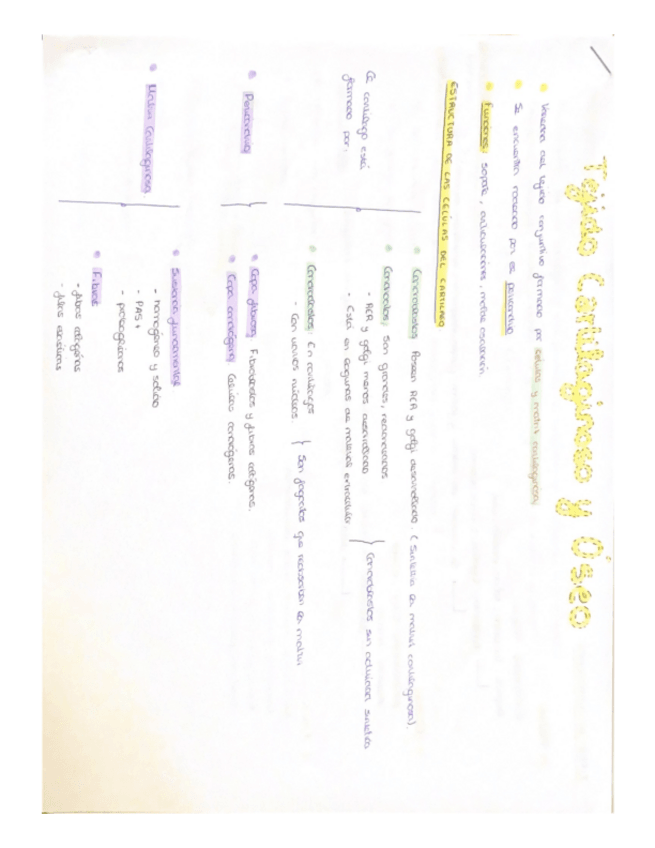 Tejido Cartilaginoso y Óseo
Variedad del tejido conjuntivo formado por células y matriz cartilaginosa
Se encuentra rodeado por el pericondrio
Funciones: soporte, articulaciones, osificación
ESTRUCTURA DE LAS CÉLULAS DEL CARTÍLAGO
El cartílago está formado por:
Condroblastos Poseen RER y golgi desarrollado. (Sintetiza la matriz cartilaginosa).
Condrocitos; Son grandes, redondeados
- RER y golgi menos desarrollado
- Está en lagunas de matriz
Condroblastos sin actividad sintética
Condroclastos. En cartílagos
- Con varios núcleos.
Son fagocitos que reabsorben la matriz
Pericondrio
Capa fibrosa: Fibroblastos y fibras colágenas.
Capa condrógena: Células condrógenas.
Matriz Cartilaginosa
Sustancia fundamental
- homogénea y sólida
- PAS+
- proteoglicanos
Fibras
- fibras colágenas
- fibras elásticas